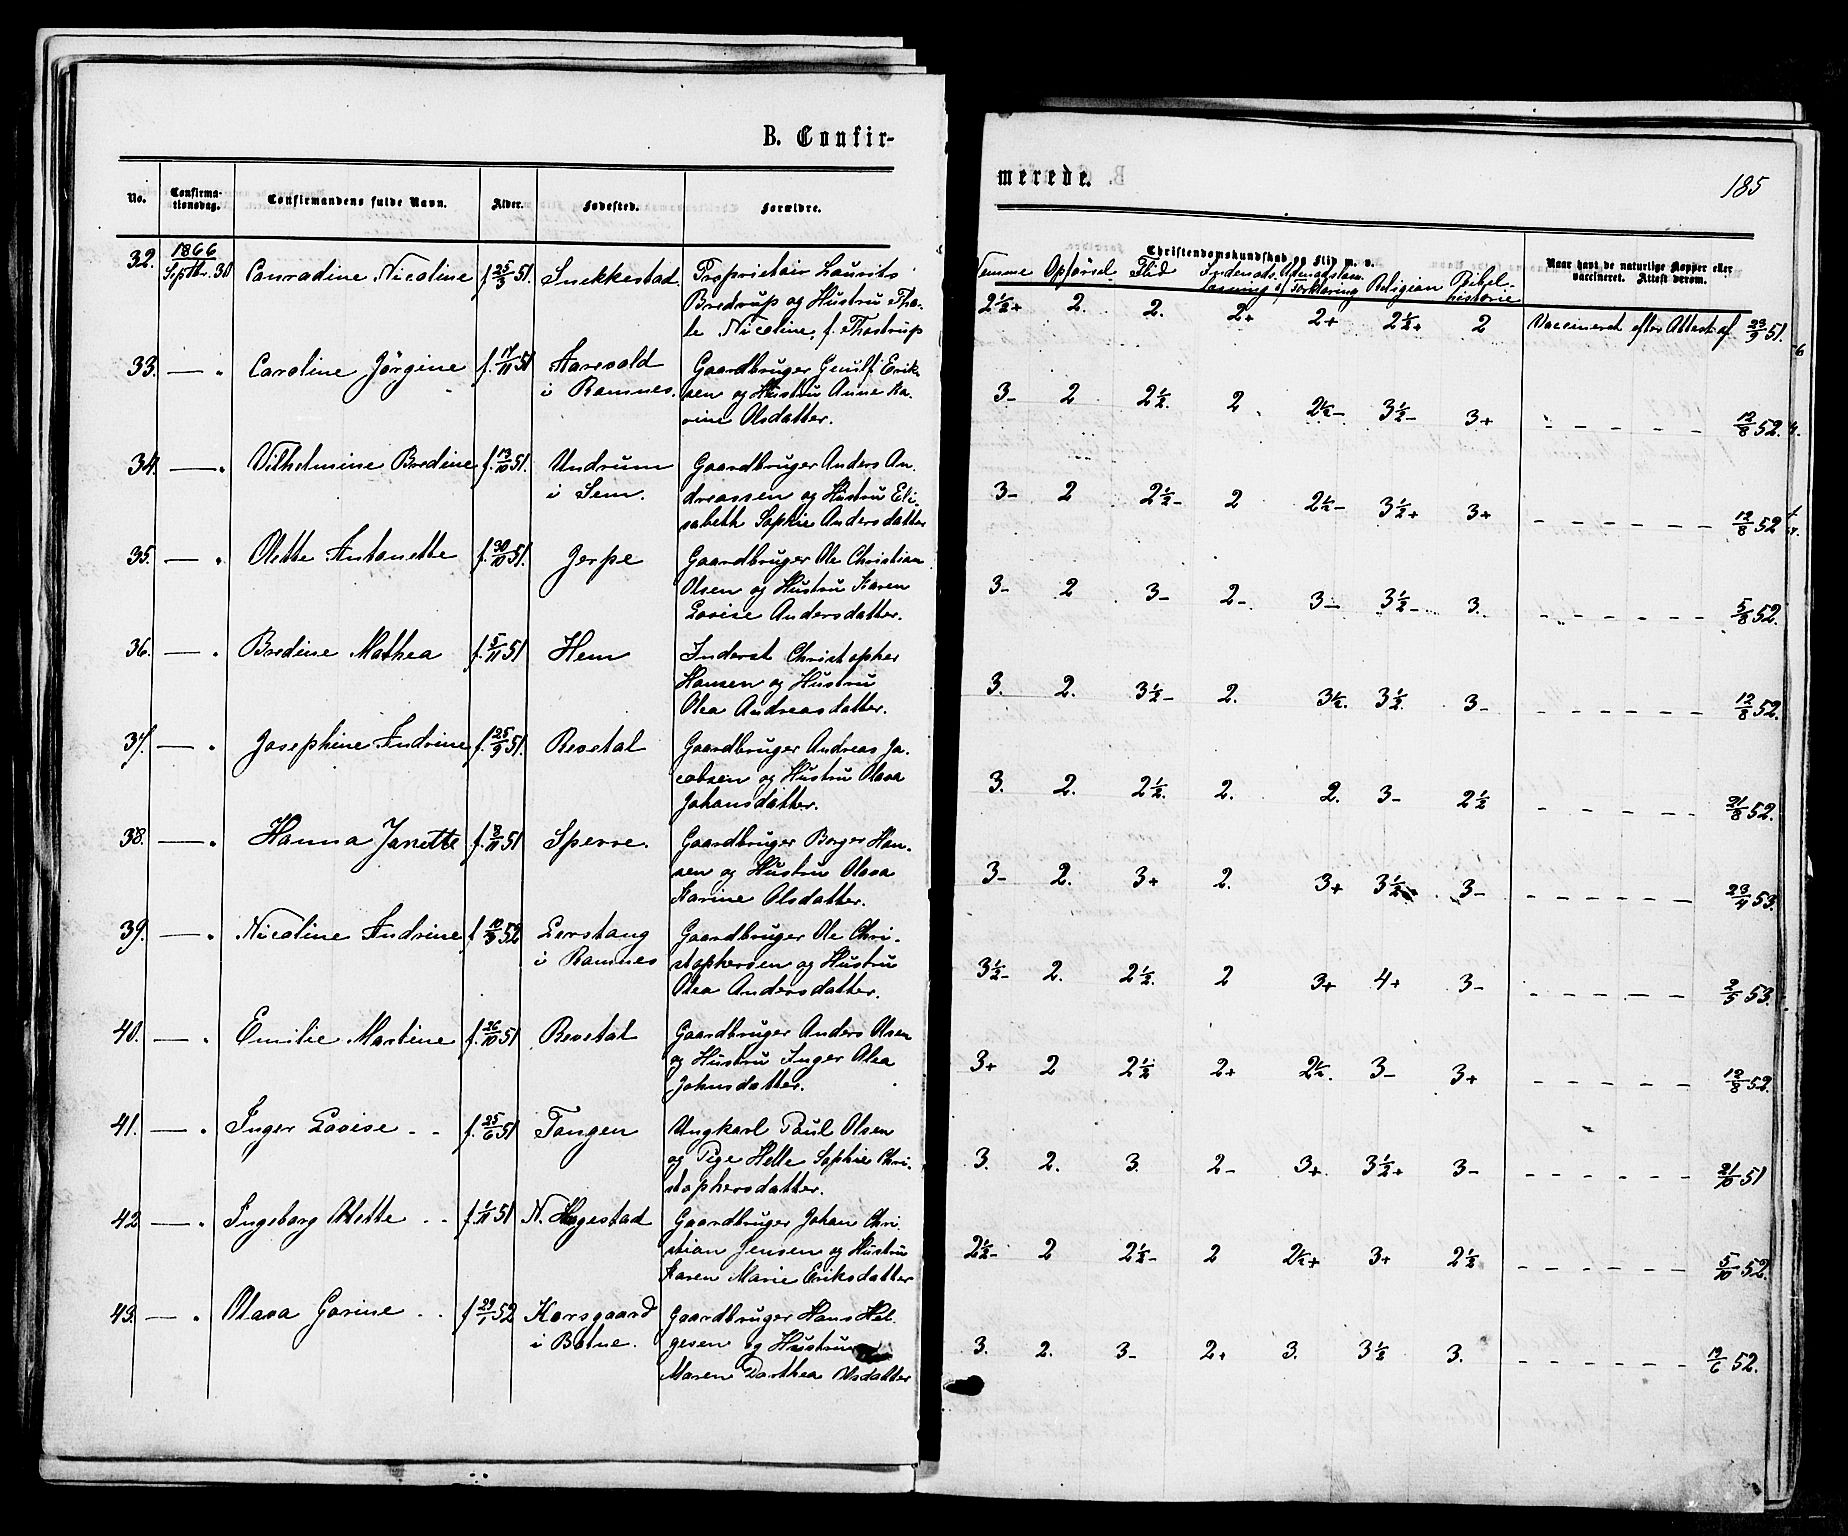 B. Confir-
No. Confirma-tionsdag. Confirmandens fulde Navn. Alder. Fødested. Forældre.
32. 1866 Septbr. 30 Conradine Nicoline f. 25/3 51. Snekkestad. Proprietair Laurits
Bredrup og Hustru Tho-
le Nicoline, f. Thostrup
33. — " Caroline Jørgine f. 17/11 51 Aarevold Gaardbruger Gunulf Erik-
i Ramnes. sen og Hustru Anne Ka-
rine Olsdatter.
34. — " Vilhelmine Bredine f. 13/10 51. Undrum Gaardbruger Anders An-
i Sem. dreassen og Hustru Eli-
sabeth Sophie Andersdatter
35. — " Olette Antonette f. 30/10 51. Jerpe Gaardbruger Ole Christian
Olsen og Hustru Karen
Lovise Andersdatter.
36. — " Bredine Mathea f. 5/11 51 Hem Inderst Christopher
Hansen og Hustru
Olea Andreasdatter.
37. — " Josephine Andrine f. 25/9 51. Revetal Gaardbruger Andreas Ja-
cobsen og Hustru Olava
Johansdatter.
38. — " Hanna Janette f. 8/11 51 Sperre. Gaardbruger Borger Han-
sen og Hustru Olava
Karine Olsdatter.
39. — " Nicoline Andrine f 10/3 52 Lerstang Gaardbruger Ole Chri-
i Ramnes stophersen og Hustru
Olea Andersdatter.
40. — " Emilie Martine f. 26/10 51 Revetal Gaardbruger Anders Olsen
og Hustru Inger Olea
Johnsdatter.
41. — " Inger Lovise f. 25/6 51 Tangen Ungkarl Paul Olsen
og Pige Helle Sophie Chri-
stophersdatter.
42 — " Ingeborg Olette f. 1/11 51 N. Høgestad Gaardbruger Johan Chri-
stian Jensen og Hustru
Karen Marie Eriksdatter
43. — " Olava Gorine f 29/1 52 Korsgaard Gaardbruger Hans Hel-
i Botne. gesen og Hustru
Maren Dorthea Olsdatter
merede.
185
Christendomskundskab og Flid m. v. Naar havt de naturlige Kopper eller
vaccineret. Attest derom.
Nemme Opførsel Flid Indenads Udenadslæs. Religion Bibel-
Læsning Forklaring historie
2½+ 2. 2. 2+ 2+ 2½+ 2 Vaccineret efter Attest af 23/9 51.
3- 2 2½. 2 2½- 3½- 3+ " - - - - - 12/8 52.
3- 2 2½- 2 2½- 3½+ 3+ - - - - - - 12/8 52
3- 2 3- 2- 3- 3½- 3. - - - - - - 5/8 52.
3. 2. 3½- 2. 3½. 3½. 3- - - - - - - 12/8 52.
3. 2. 2½. 2. 2. 3- 2½ - - - - - - 21/8 52.
3- 2. 3+ 2. 3+ 3½- 3- - - - - - - 23/4 53.
3½- 2. 2½. 2 3+ 4+ 3- - - - - - - 2/5 53.
3+ 2 2½ 2+ 2½. 3- 3+ - - - - - - 12/8 52.
3. 2. 3. 2- 3+ 3½+ 3- - - - - - - 21/10 51
2½- 2 2½- 2 2½+ 3+ 2½ - - - - - - 5/10 52.
3. 2. 3- 2+ 3. 3½ 3. - - - - - - 19/6 52.